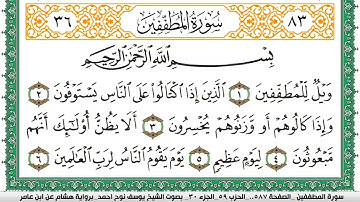 ٣٦ سورة المطففين ٨٣
بِسْمِ اللَّهِ الرَّحْمَٰنِ الرَّحِيمِ
وَيْلٌ لِّلْمُطَفِّفِينَ ١ الَّذِينَ إِذَا اكْتَالُوا عَلَى النَّاسِ يَسْتَوْفُونَ ٢
وَإِذَا كَالُوهُمْ أَو وَّزَنُوهُمْ يُخْسِرُونَ ٣ أَلَا يَظُنُّ أُولَٰئِكَ أَنَّهُم
مَّبْعُوثُونَ ٤ لِيَوْمٍ عَظِيمٍ ٥ يَوْمَ يَقُومُ النَّاسُ لِرَبِّ الْعَالَمِينَ ٦
سورة المطففين . الصفحة ٥٨٧.. الحزب ٥٩ .الجزء ٣٠ . بصوت الشيخ يوسف نوح احمد .برواية هشام عن ابن عامر